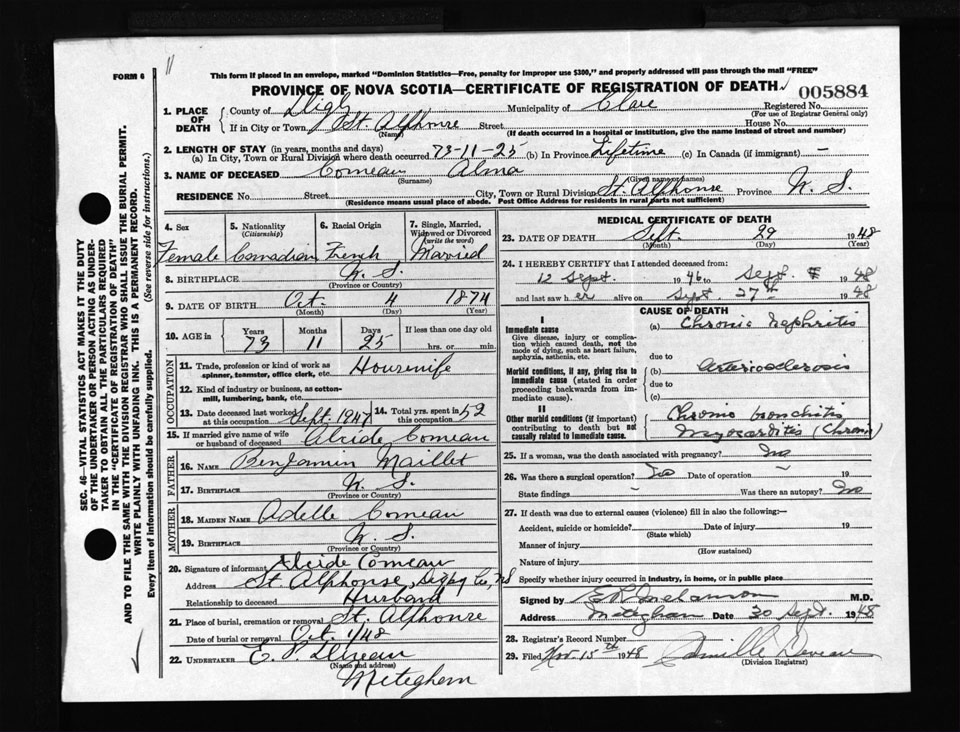 11
FORM 6
This form if placed in an envelope, marked "Dominion Statistics—Free, penalty for improper use $300," and properly addressed will pass through the mail "FREE"
PROVINCE OF NOVA SCOTIA—CERTIFICATE OF REGISTRATION OF DEATH
005884
1. PLACE OF DEATH
County of Digby Municipality of Clare Registered No.
(For use of Registrar General only)
If in City or Town St. Alphonse Street House No.
(Name) (If death occurred in a hospital or institution, give the name instead of street and number)
2. LENGTH OF STAY (in years, months and days)
(a) In City, Town or Rural Division where death occurred 73-11-25 (b) In Province Lifetime (c) In Canada (if immigrant) —
3. NAME OF DECEASED Comeau Alma
(Surname) (Given name or names)
RESIDENCE No. Street City, Town or Rural Division St. Alphonse Province N. S.
(Residence means usual place of abode. Post Office Address for residents in rural parts not sufficient)
4. Sex 5. Nationality (Citizenship) 6. Racial Origin 7. Single, Married, Widowed or Divorced (write the word)
Female Canadian French Married
8. BIRTHPLACE N. S.
(Province or Country)
9. DATE OF BIRTH Oct. 4 1874
(Month) (Day) (Year)
10. AGE in Years Months Days If less than one day old
73 11 25 hrs. or min.
OCCUPATION
11. Trade, profession or kind of work as spinner, teamster, office clerk, etc. Housewife
12. Kind of industry or business, as cotton-mill, lumbering, bank, etc.
13. Date deceased last worked at this occupation Sept. 1947 14. Total yrs. spent in this occupation 52
15. If married give name of wife or husband of deceased Alcide Comeau
FATHER
16. NAME Benjamin Maillet
17. BIRTHPLACE N. S.
(Province or Country)
MOTHER
18. MAIDEN NAME Adelle Comeau
19. BIRTHPLACE N. S.
(Province or Country)
20. Signature of informant Alcide Comeau
Address St. Alphonse, Digby Co, NS
Relationship to deceased Husband
21. Place of burial, cremation or removal St. Alphonse
Date of burial or removal Oct. 1/48
22. UNDERTAKER E. P.
(Name and address)
Meteghan
MEDICAL CERTIFICATE OF DEATH
23. DATE OF DEATH Sept. 29 1948
(Month) (Day) (Year)
24. I HEREBY CERTIFY that I attended deceased from:
12 Sept. 1946 to Sept. 1948
and last saw her alive on Sept. 27th 1948
CAUSE OF DEATH
I
Immediate cause
Give disease, injury or complication which caused death, not the mode of dying, such as heart failure, asphyxia, asthenia, etc.
(a) Chronic Nephritis
due to
Morbid conditions, if any, giving rise to immediate cause (stated in order proceeding backwards from immediate cause).
(b) Arteriosclerosis
due to
(c)
II
Other morbid conditions (if important) contributing to death but not causally related to immediate cause.
Chronic bronchitis
Myocarditis (Chronic)
25. If a woman, was the death associated with pregnancy? No
26. Was there a surgical operation? No Date of operation 19
State findings Was there an autopsy? No
27. If death was due to external causes (violence) fill in also the following:—
Accident, suicide or homicide? Date of injury 19
(State which)
Manner of injury
(How sustained)
Nature of injury
Specify whether injury occurred in industry, in home, or in public place
Signed by M.D.
Address Meteghan 30 Sept. 1948
28. Registrar's Record Number
29. Filed Nov. 15th 1948 Camille Deveau
(Division Registrar)
SEC. 46—VITAL STATISTICS ACT MAKES IT THE DUTY
OF THE UNDERTAKER OR PERSON ACTING AS UNDER-
TAKER TO OBTAIN ALL THE PARTICULARS REQUIRED
IN THE "CERTIFICATE OF REGISTRATION OF DEATH"
AND TO FILE THE SAME WITH THE DIVISION REGISTRAR WHO SHALL ISSUE THE BURIAL PERMIT.
WRITE PLAINLY WITH UNFADING INK. THIS IS A PERMANENT RECORD.
Every item of information should be carefully supplied. (See reverse side for instructions.)